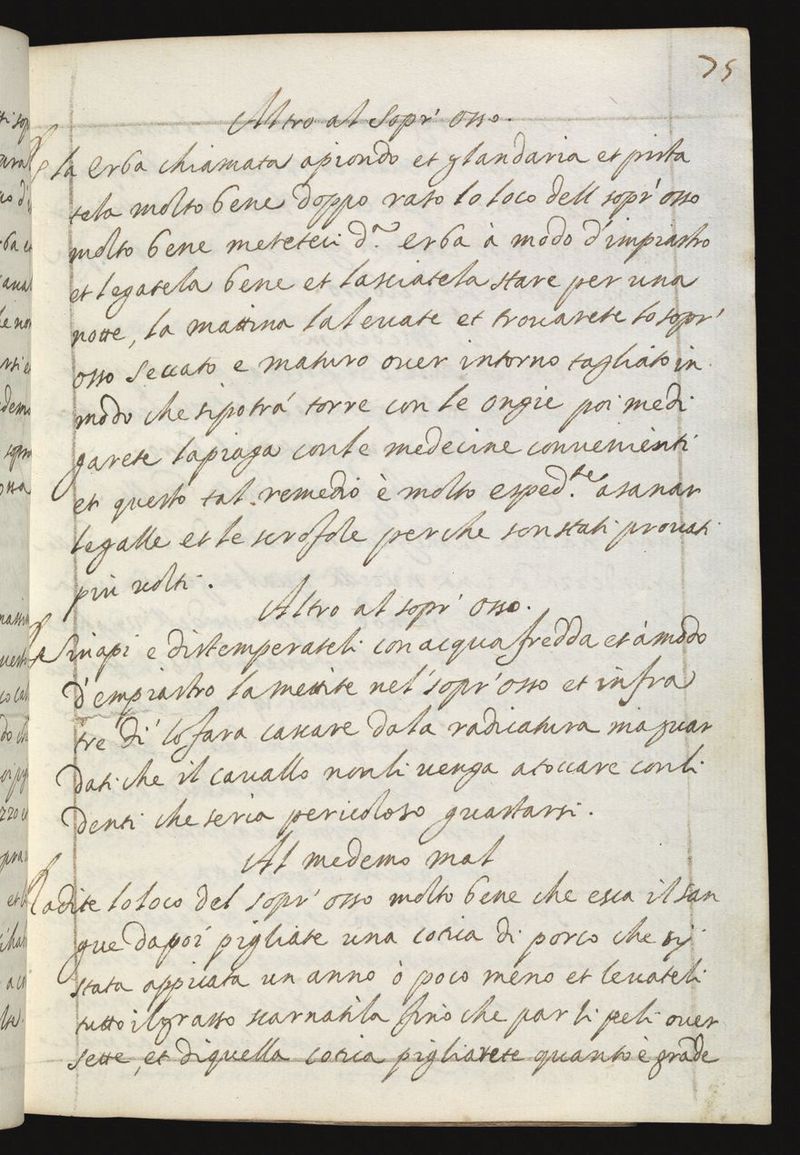 75
Altro al sopr' osso.
la Erba chiamata apiondo et glandaria et pista
tela molto bene doppo raso lo loco dell sopr' osso
molto bene meteteci d.a erba à modo d'impiastro
et legatela bene et lasciatela stare per una
notte, la mattina la levate et trovarete lo sopr'
osso seccato e maturo over intorno tagliato in
modo che si potrá torre con le ongie poi medi
garete la piaga con le medecine convenienti
et questo tal remedio è molto esped.te a sanar
le galle et le scrofole perche son stati provati
piu volti.
Altro al sopr' osso.
Sinapi e distemperateli con acqua fredda et á modo
d'empiastro la mettite nel' sopr' osso et infra
tre di' lo fara cascare da la radicatura ma guar
dati che il cavallo non li venga a toccare con li
denti che seria pericoloso guastarsi.
Al medemo mal
Radite lo loco del sopr' osso molto bene che esca il san
gue da poi pigliate una cotica di porco che sij
stata appicata un anno ò poco meno et levateli
tutto il grasso scarnatila fino che par li peli over
sette, et di quella cotica pigliarete quanto è grāde